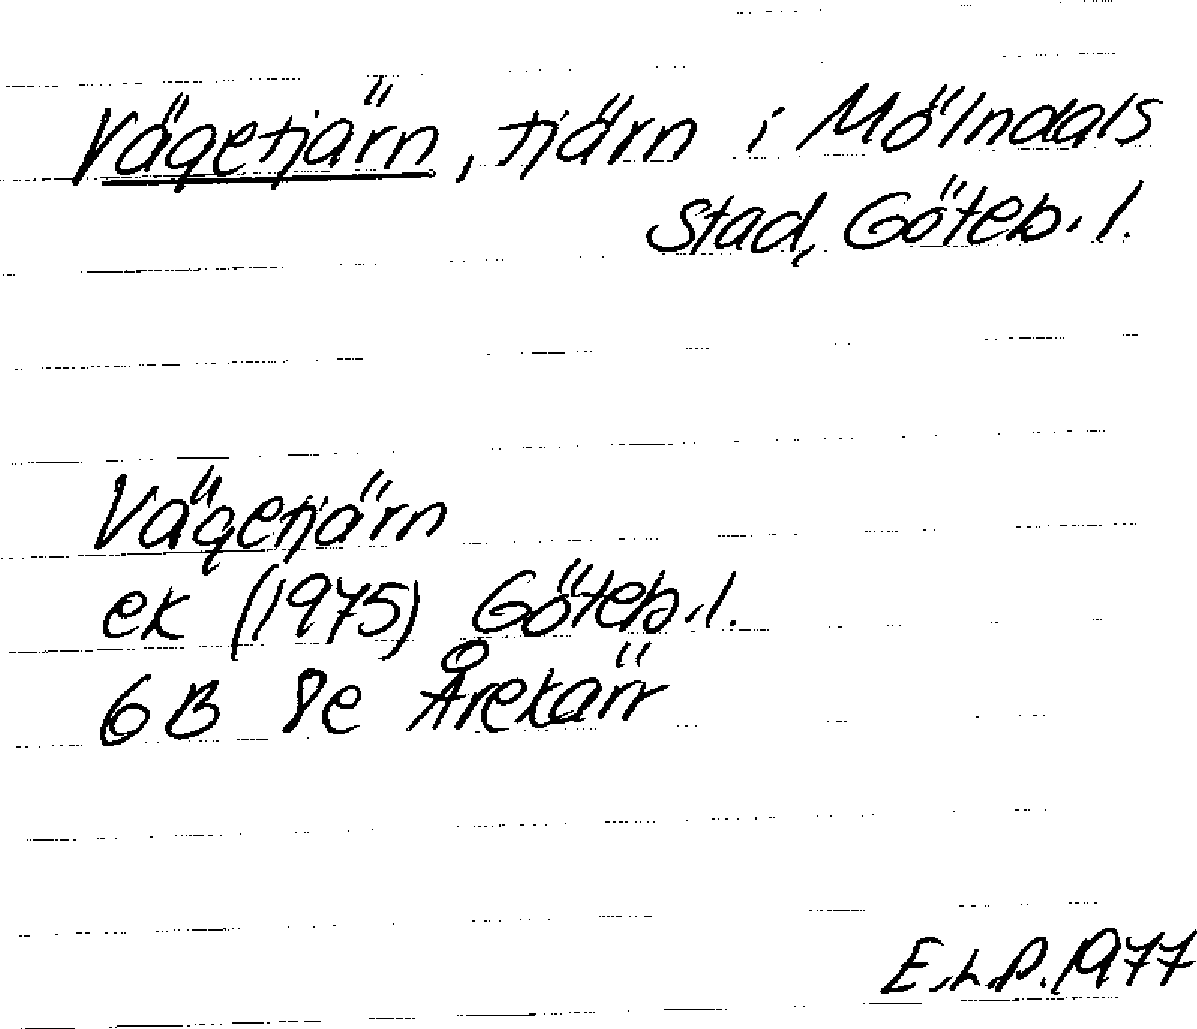 Vägetjärn, tjärn i Mölndals
stad, Göteb. l.
Vägetjärn
ek (1975) Göteb. l.
6B 8e Årekärr
E.L.P. 1977